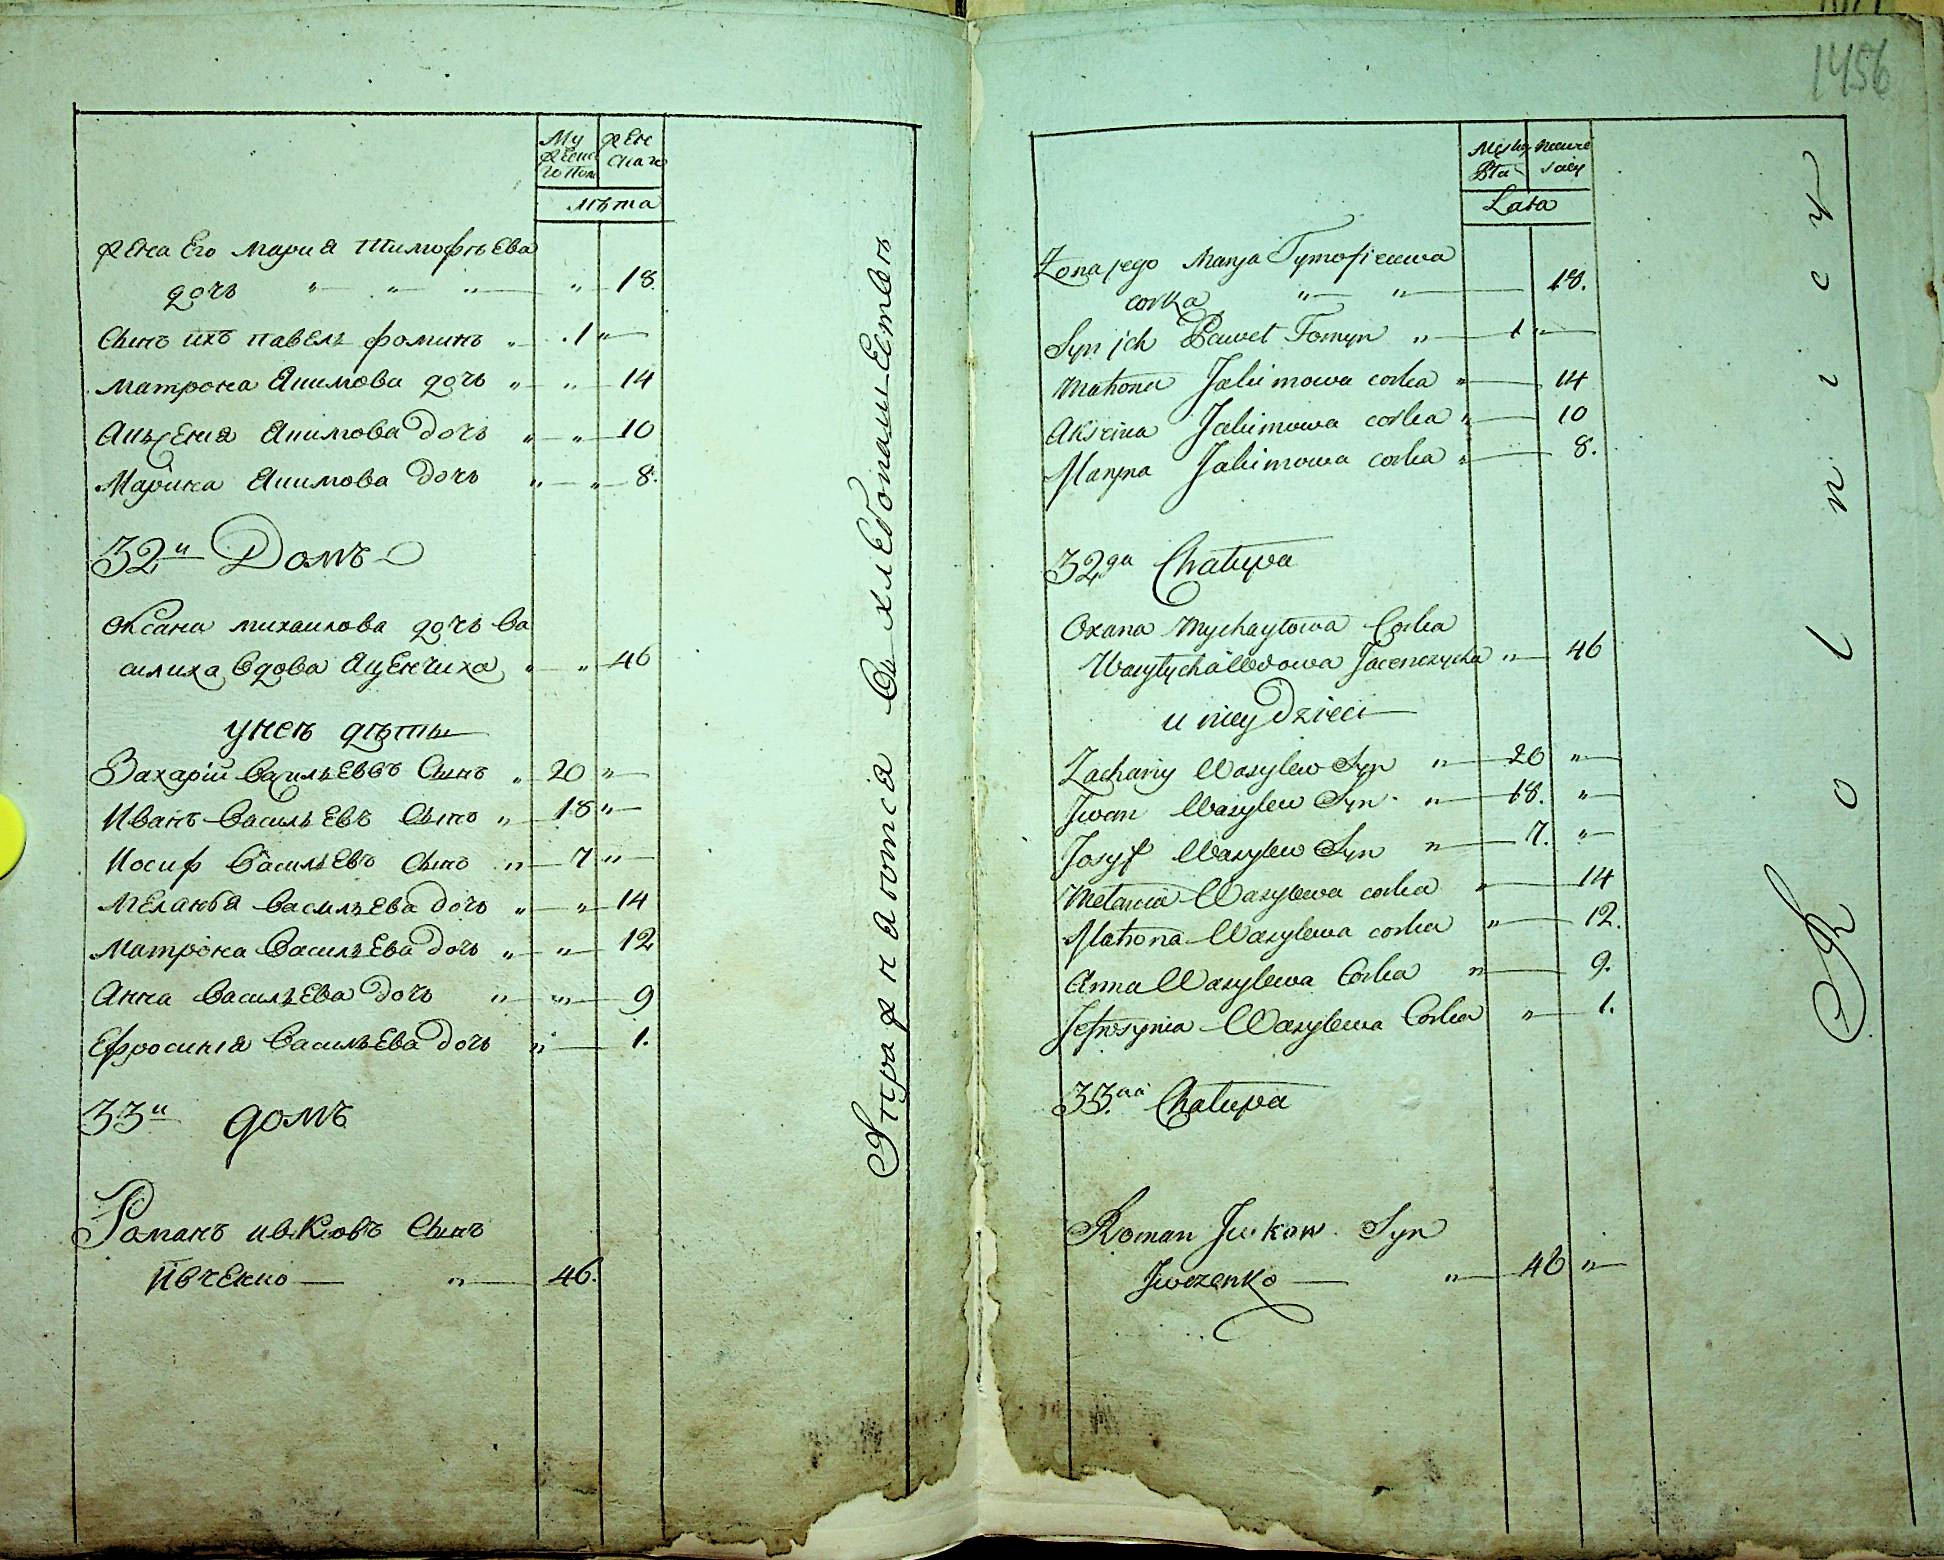 1456
Му
жеска
го пола
жен
скаго
лѣта
жена Его Мария Тимофѣева
дочь " " " " 18.
Сынъ ихъ павелъ фоминъ " 1 "
Матрона Якимова дочь " " 14
Аксения Якимова дочь " " 10
Марина Якимова дочь " " 8.
32й Домъ
Оксана михаилова дочь Ва
силиха вдова Яценчиха " " 46
у неѣ дѣти
Захарій Васильевъ Сынъ " 20 "
Иванъ Васильевъ Сынъ " 18 "
Иосиф Васильевъ Сынъ " 7 "
Меланья Васильева дочь " " 14
Матрона Васильева дочь " " 12
Анна Васильева дочь " " 9
Ефросиния Васильева дочь " 1.
33й домъ
Романъ ивковъ Сынъ
Ивченко " 46.
Упражняются Въ хлебопашествѣ
Męska
Płci
Lata
Żona jego Marya Tymofieiewa
corka " " 18.
Syn ich Paweł Fomyn " 1 "
Matrona Jakimowa corka " 14
Aksenia Jakimowa corka " 10
Maryna Jakimowa corka " 8.
32ga Chałupa
Oxana Mychayłowa Corka
Wasylycha Wdowa Jacenczycha " 46
u niey Dzieci
Zachariy Wasylew Syn " 20 "
Jwan Wasylew Syn " 18. "
Josyf Wasylew Syn " 7. "
Melania Wasylewa corka " 14
Matrona Wasylewa corka " 12.
Anna Wasylewa Corka " 9.
Jefrosynia Wasylewa Corka " 1.
33cia Chałupa
Roman Jwkow Syn
Jwczenko " 46 "
Rolnicy